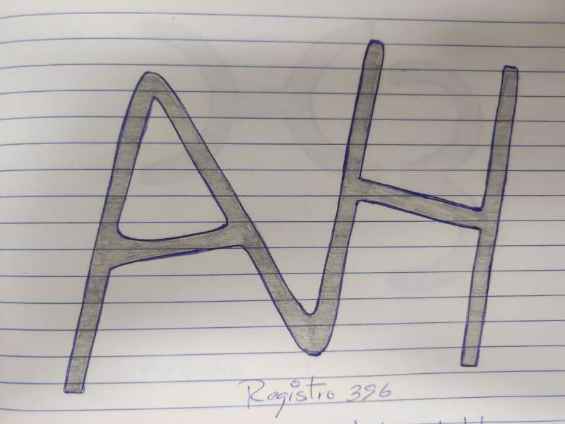 AH
Registro 396